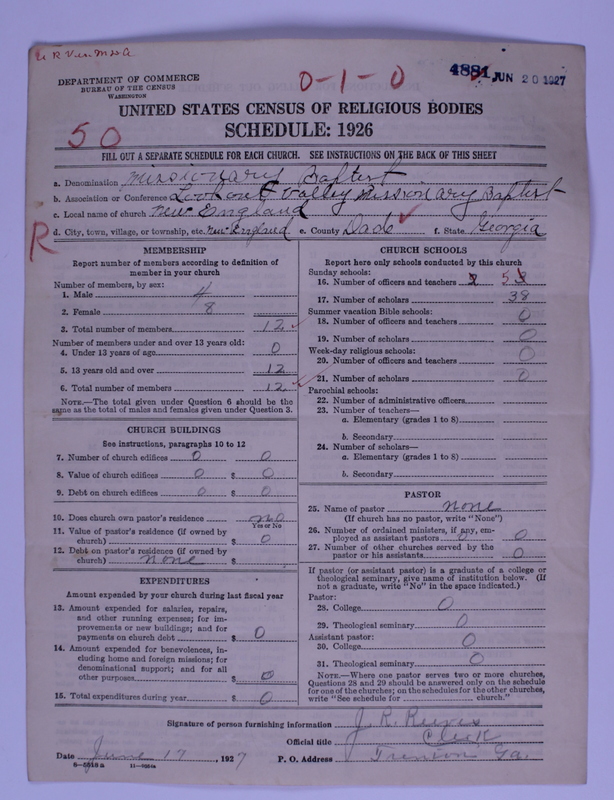 DEPARTMENT OF COMMERCE
BUREAU OF THE CENSUS
WASHINGTON
0-1-0
4881 JUN 20 1927
UNITED STATES CENSUS OF RELIGIOUS BODIES
50
SCHEDULE: 1926
FILL OUT A SEPARATE SCHEDULE FOR EACH CHURCH. SEE INSTRUCTIONS ON THE BACK OF THIS SHEET
a. Denomination Missionary Baptist
b. Association or Conference Lookout Valley Missionary Baptist
c. Local name of church New England
R
d. City, town, village, or township, etc. New England e. County Dade f. State Georgia
MEMBERSHIP
Report number of members according to definition of
member in your church
Number of members, by sex:
1. Male 4
2. Female 8
3. Total number of members 12
Number of members under and over 13 years old:
4. Under 13 years of age 0
5. 13 years old and over 12
6. Total number of members 12
NOTE.—The total given under Question 6 should be the
same as the total of males and females given under Question 3.
CHURCH BUILDINGS
See instructions, paragraphs 10 to 12
7. Number of church edifices 0 0
8. Value of church edifices 0 $ 0
9. Debt on church edifices 0 $ 0
10. Does church own pastor's residence no
Yes or No
11. Value of pastor's residence (if owned by
church) $ 0
12. Debt on pastor's residence (if owned by
church) none $
EXPENDITURES
Amount expended by your church during last fiscal year
13. Amount expended for salaries, repairs,
and other running expenses; for im-
provements or new buildings; and for
payments on church debt $ 0
14. Amount expended for benevolences, in-
cluding home and foreign missions; for
denominational support; and for all
other purposes $ 0
15. Total expenditures during year $ 0
CHURCH SCHOOLS
Report here only schools conducted by this church
Sunday schools:
16. Number of officers and teachers 5
17. Number of scholars 38
Summer vacation Bible schools:
18. Number of officers and teachers 0
19. Number of scholars 0
Week-day religious schools:
20. Number of officers and teachers 0
21. Number of scholars 0
Parochial schools:
22. Number of administrative officers
23. Number of teachers—
a. Elementary (grades 1 to 8)
b. Secondary
24. Number of scholars—
a. Elementary (grades 1 to 8)
b. Secondary
PASTOR
25. Name of pastor none
(If church has no pastor, write "None")
26. Number of ordained ministers, if any, em-
ployed as assistant pastors 0
27. Number of other churches served by the
pastor or his assistants 0
If pastor (or assistant pastor) is a graduate of a college or
theological seminary, give name of institution below. (If
not a graduate, write "No" in the space indicated.)
Pastor:
28. College 0
29. Theological seminary 0
Assistant pastor:
30. College 0
31. Theological seminary 0
NOTE.—Where one pastor serves two or more churches,
Questions 28 and 29 should be answered only on the schedule
for one of the churches; on the schedules for the other churches,
write "See schedule for church."
Signature of person furnishing information J. R. Reeves
Official title Clerk
Date June 17, 1927 P. O. Address Trenton Ga.